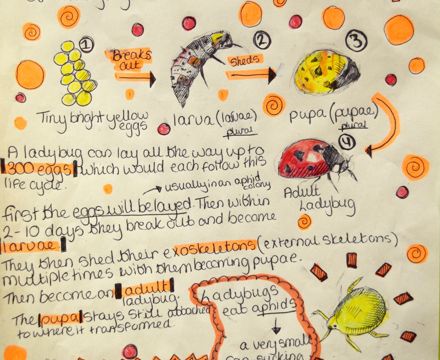 ① Breaks out ② Sheds ③
Tiny bright yellow eggs
larva (larvae) plural
pupa (pupae) plural
④
Adult Ladybug
A ladybug can lay all the way up to
300 eggs which would each follow this
life cycle.
usually in an aphid colony
first the eggs will be layed Then within
2-10 days they break out and become
larvae
They then shed their exoskeletons (external skeletons)
multiple times with them becoming pupae.
Then become an adult
ladybug.
The pupa stays still attached
to where it transformed
Ladybugs
eat aphids
a very small
sap sucking